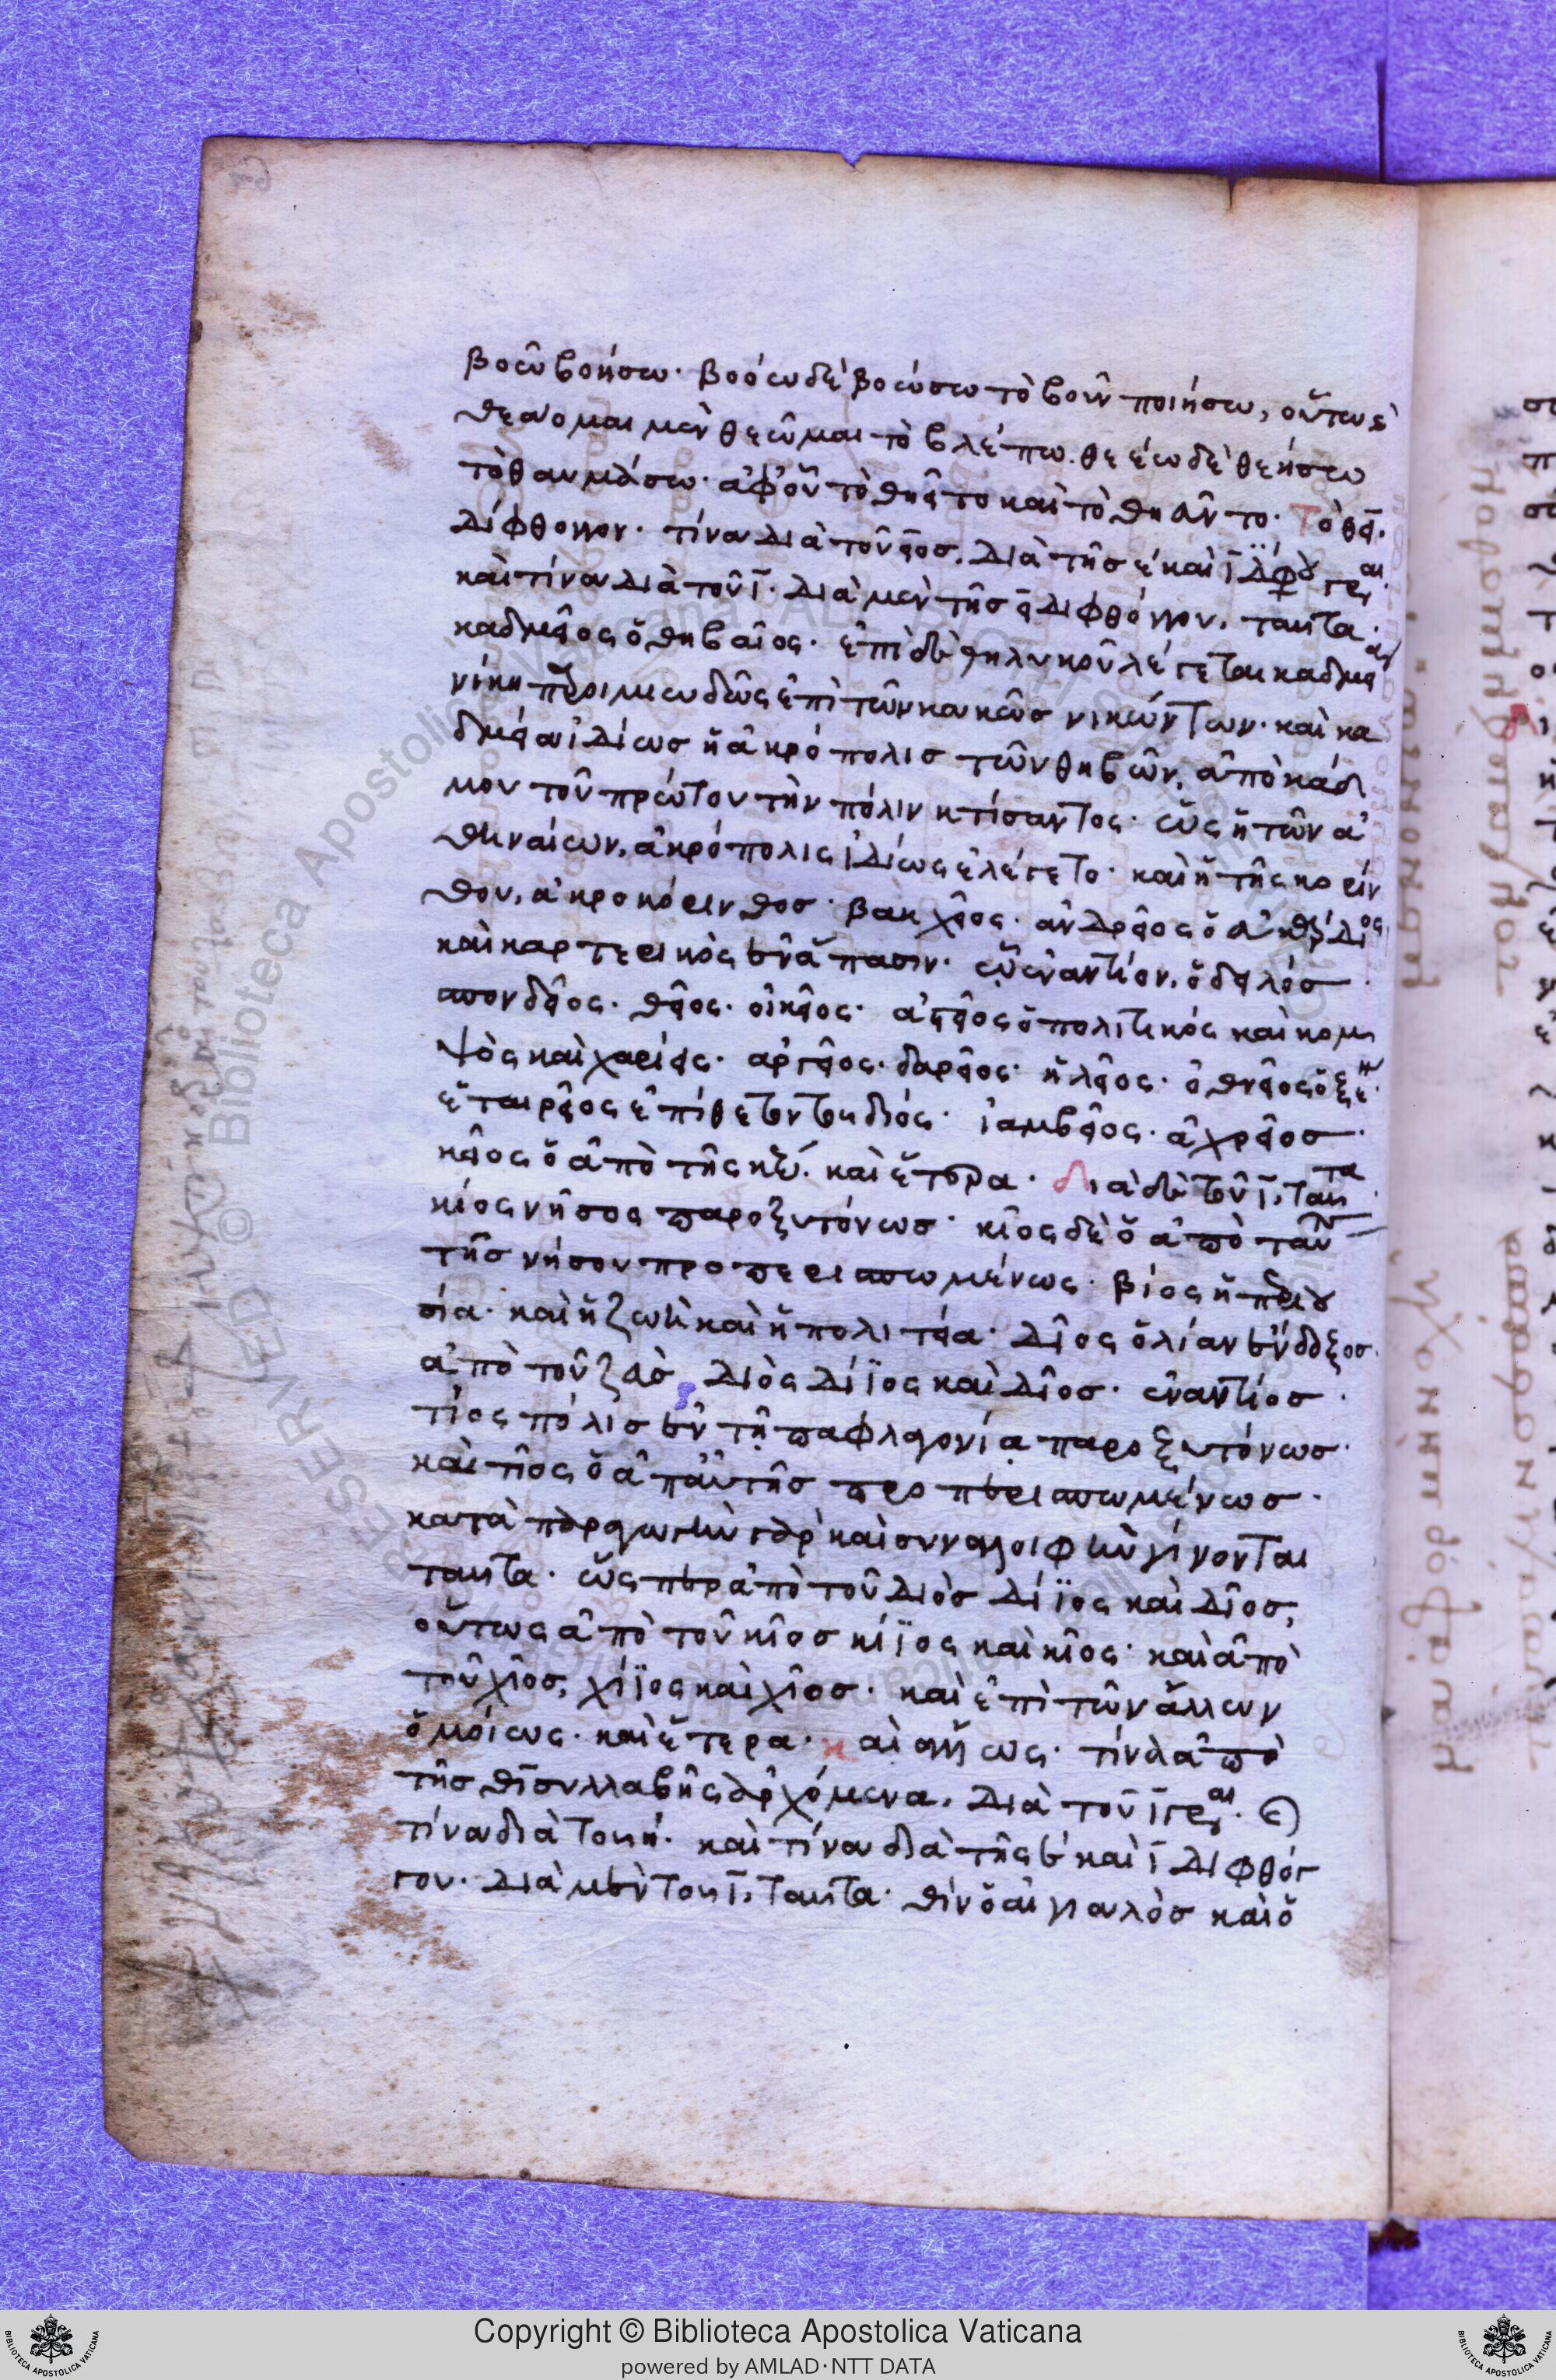 βοῶ βοήσω· βοόω δὲ βοώσω τὸ βοῦν ποιήσω, οὕτως
θεάομαι μὲν θεῶμαι τὸ βλέπω. θεέω δὲ θεήσω
τὸ θαυμάσω· ἀφ' οὗ τὸ θηεῖτο καὶ τὸ θηεῦντο· Τὸ θει
δίφθογγον· τίνα διὰ τοῦ ειος. διὰ τῆς ε καὶ ι
καὶ τίνα διὰ τοῦ ι· διὰ μὲν τῆς ει διφθόγγου, ταῦτα·
καδμεῖος ὁ θηβαῖος· ἐπὶ δὲ θηλυκοῦ λέγεται καδμεία
νίκη παροιμιωδῶς ἐπὶ τῶν κακῶς νικώντων· καὶ κα
δμεία ἰδίως ἡ ἀκρόπολις τῶν θηβῶν, ἀπὸ κάδ
μου τοῦ πρώτου τὴν πόλιν κτίσαντος· ὡς ἡ τῶν ἀ
θηναίων, ἀκρόπολις ἰδίως ἐλέγετο· καὶ ἡ τῆς κορίν
θου, ἀκροκόρινθος· βακχεῖος· ἀνδρεῖος ὁ
καὶ καρτερικὸς ἐν ἅπασιν· ᾧ ἐναντίον, ὁ δειλός
σπονδεῖος· θεῖος· οἰκεῖος· ἀστεῖος ὁ πολιτικός καὶ κομ
ψὸς καὶ χαρίεις· ἀργεῖος· δαρεῖος· ἠλεῖος· ὀθνεῖος ὁ ξέν
ἑταιρεῖος ἐπίθετον τοῦ διός· ἰαμβεῖος· ἀχρεῖος
κεῖος ὁ ἀπὸ τῆς κέω· καὶ ἕτερα· Διὰ δὲ τοῦ ι, ταῦτα
κίος νῆσος παροξυτόνως· κῖος δὲ ὁ ἀπὸ ταύ
της νήσου προπερισπωμένως· βίος ἡ περιου
σία· καὶ ἡ ζωὴ καὶ ἡ πολιτεία· δῖος ὁ λίαν ἔνδοξος
ἀπὸ τοῦ ζεὺς διὸς δίϊος καὶ δῖος· ἐναντίος
τίος πόλις ἐν τῇ παφλαγονίᾳ παροξυτόνως·
καὶ τῖος ὁ ἀπ' αὐτῆς προπερισπωμένως·
κατὰ παραγωγὴν γὰρ καὶ συναλοιφὴν γίνονται
ταῦτα· ὥσπερ ἀπὸ τοῦ διὸς δίϊος καὶ δῖος,
οὕτως ἀπὸ τοῦ κῖος κίϊος καὶ κῖος· καὶ ἀπὸ
τοῦ χῖος, χίϊος καὶ χῖος· καὶ ἐπὶ τῶν ἄλλων
ὁμοίως· καὶ ἕτερα· καὶ ἄλλως· τίνα ἀπὸ
τῆς θι συλλαβῆς ἀρχόμενα, διὰ τοῦ ι
τίνα διὰ τοῦ η· καὶ τίνα διὰ τῆς ε καὶ ι διφθόγ
γου· διὰ μὲν τοῦ ι, ταῦτα· θὶν ὁ αἰγιαλὸς καὶ ὁ
Copyright © Biblioteca Apostolica Vaticana
powered by AMLAD·NTT DATA